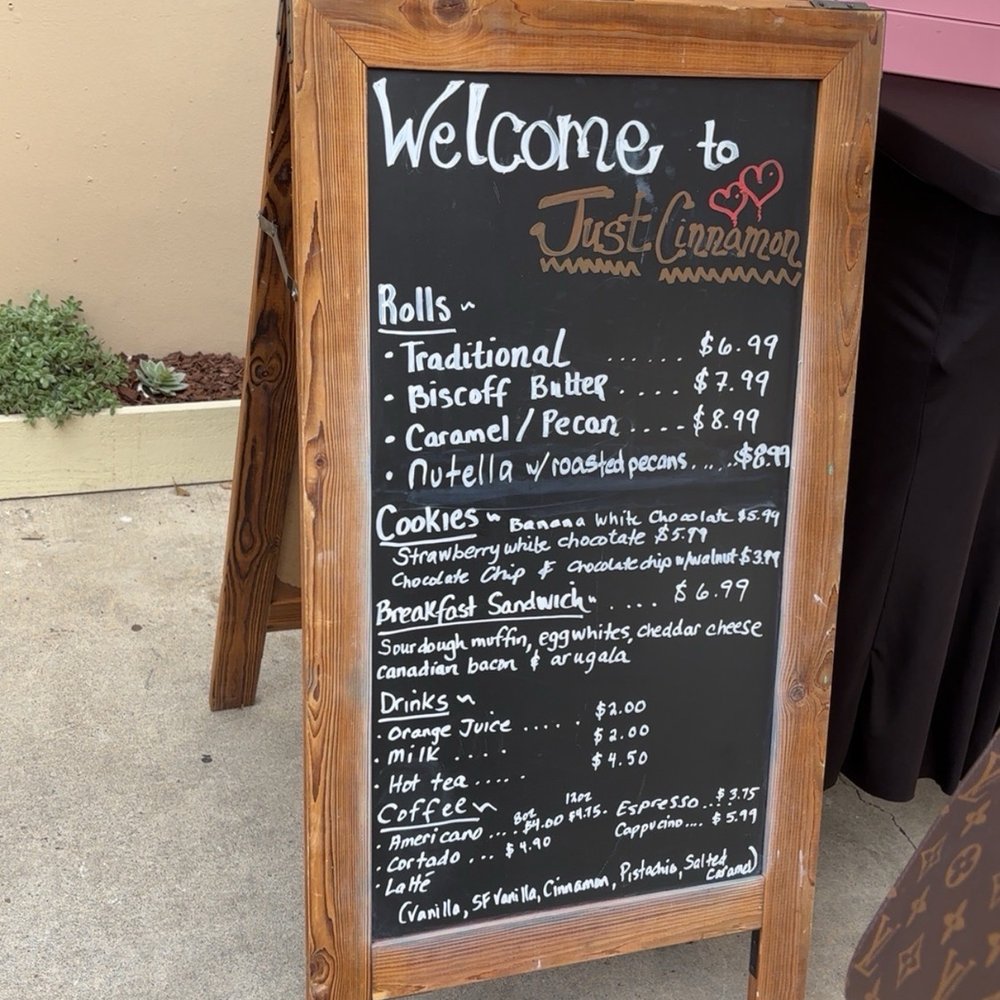 Welcome to
Just Cinnamon
Rolls ~
• Traditional ...... $6.99
• Biscoff Butter .... $7.99
• Caramel / Pecan .... $8.99
• Nutella w/ roasted pecans..... $8.99
Cookies ~ Banana White Chocolate $5.99
Strawberry white chocotate $5.99
Chocolate Chip & Chocolate chip w/walnut $3.99
Breakfast Sandwich ~ .... $6.99
Sourdough muffin, egg whites, cheddar cheese
Canadian bacon & arugala
Drinks ~
• Orange Juice ..... $2.00
• Milk .... $2.00
• Hot tea..... $4.50
Coffee ~ 8oz 12oz
• Americano ... $4.00 $4.75. Espresso.. $3.75
• Cortado ... $4.90 Cappucino.... $5.99
• Latté
(Vanilla, SF Vanilla, Cinnamon, Pistachio, Salted Caramel)